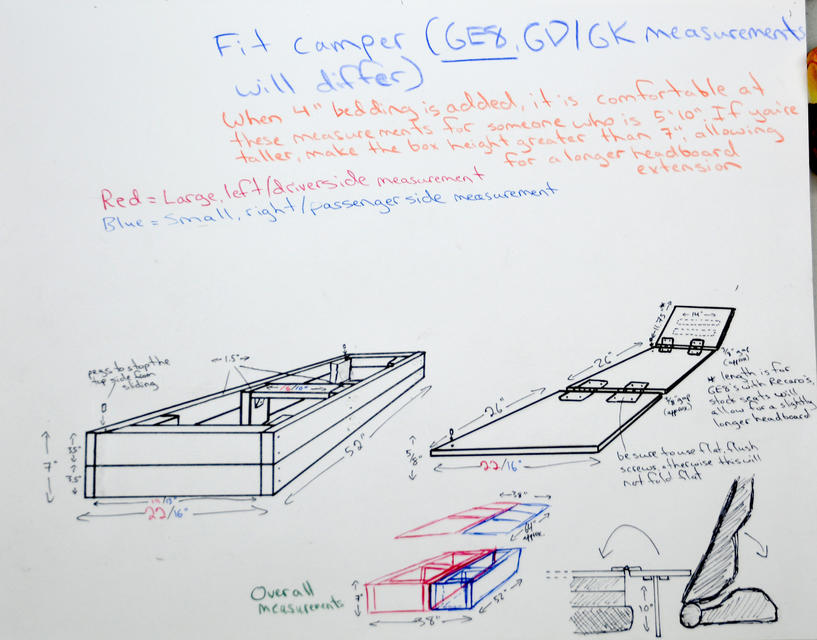 Fit camper (GE8, GD/GK measurements
will differ)
When 4" bedding is added, it is comfortable at
these measurements for someone who is 5'10". If you're
taller, make the box height greater than 7", allowing
for a longer headboard
extension
Red = Large, left/driverside measurement
Blue = Small, right/passenger side measurement
pegs to stop the
top side from
sliding
1.5"
7"
3.5"
3.5"
22/16"
52"
14"
11.75"
26"
26"
3/8" gap
(approx)
3/8" gap
(approx)
* length is for
GE8's with Recaro's,
stock seats will
allow for a slightly
longer headboard
5/8"
22/16"
be sure to use flat, flush
screws, otherwise this will
not fold flat
38"
64"
approx
Overall
measurements
7"
38"
52"
10"